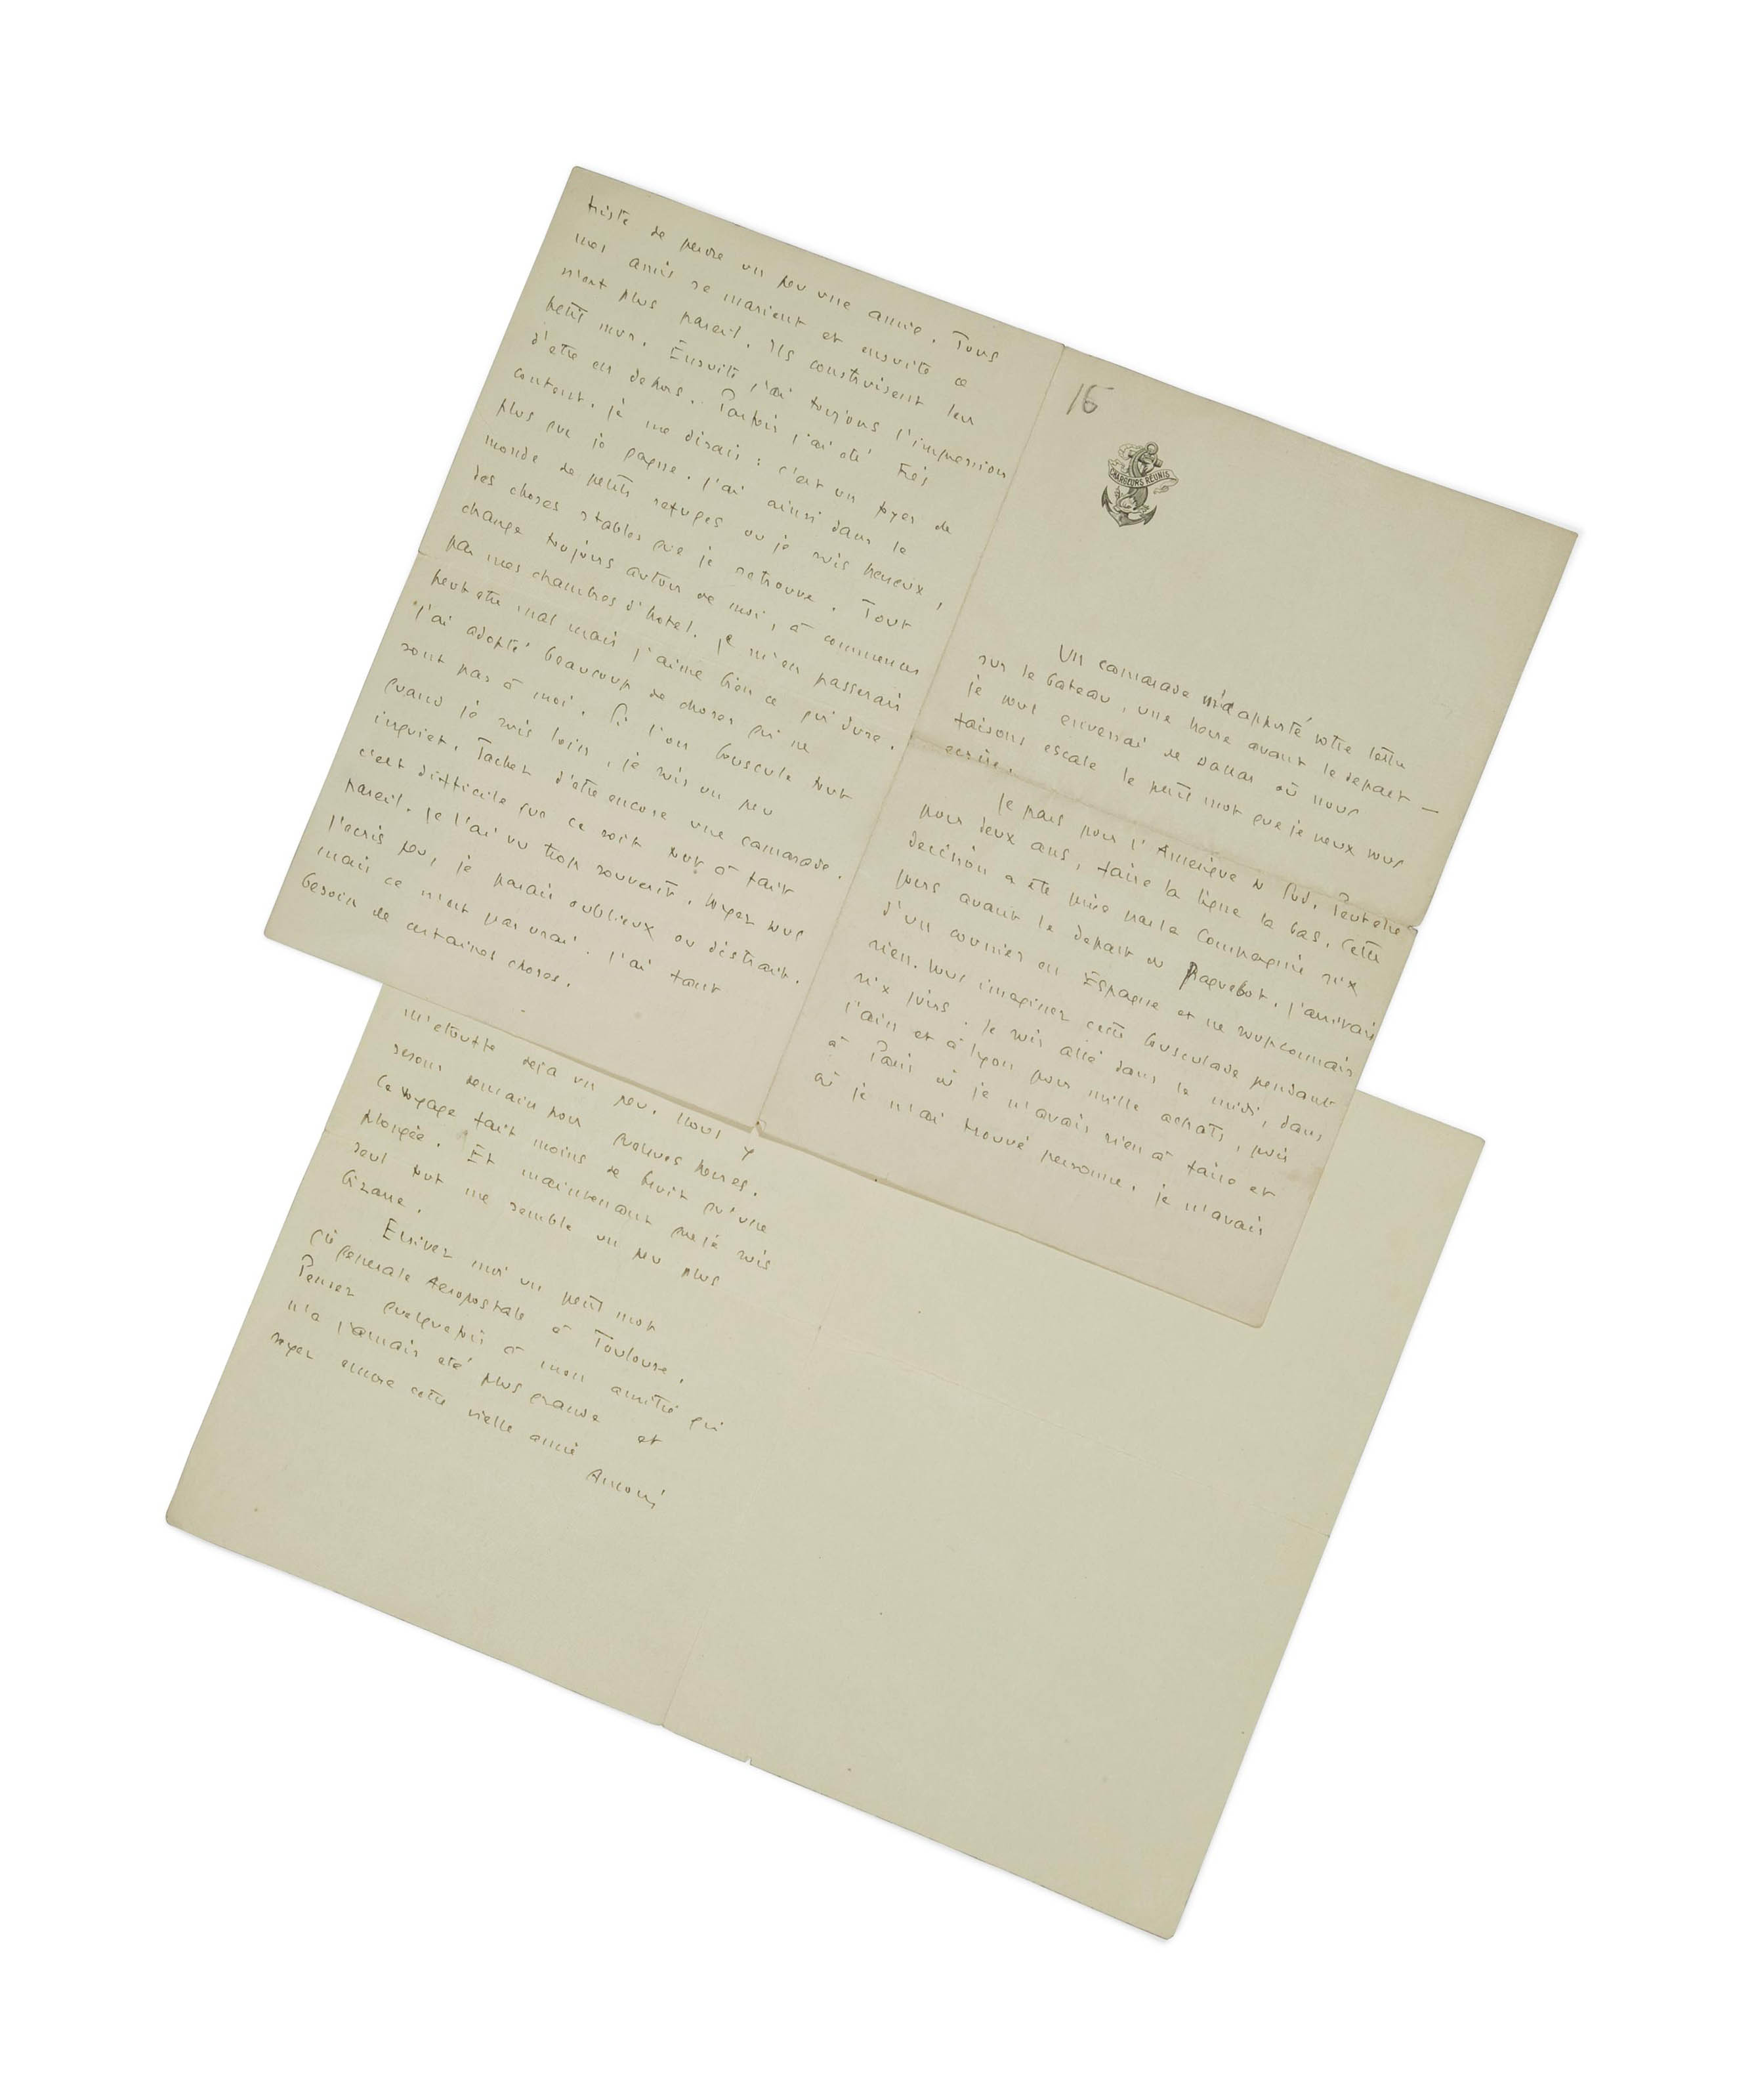 16
CHARGEURS RÉUNIS
Un camarade m'a apporté votre lettre
sur le bateau, une heure avant le depart —
je vous enverrai de Dakar où nous
faisons escale le petit mot que je veux vous
ecrire.
Je pars pour l'Amerique du Sud. Peut etre
pour deux ans, faire la ligne la bas. Cette
decision a ete prise par la Compagnie six
jours avant le depart du paquebot. J'arrivais
d'un courrier en Espagne et ne soupconnais
rien. Vous imaginez cette bousculade pendant
six jours. Je suis allé dans le midi, dans
l'ain et à Lyon pour mille achats, puis
à Paris où je n'avais rien à faire et
où je n'ai trouvé personne. Je n'avais
triste de perdre un peu une amie. Tous
mes amis se marient et ensuite ce
n'est plus pareil. Ils construisent leur
petit mur. Ensuite j'ai toujours l'impression
d'etre en dehors. Parfois j'ai été très
content. Je me disais : c'est un foyer de
plus que je gagne. J'ai ainsi dans le
monde de petits refuges ou je suis heureux,
des choses stables que je retrouve. Tout
change toujours autour de moi, à commencer
par mes chambres d'hotel. Je m'en passerais
peut etre mal mais j'aime bien ce qui dure.
J'ai adopté beaucoup de choses qui ne
sont pas à moi. Si l'on bouscule tout
quand je suis loin, je suis un peu
inquiet. Tachez d'etre encore une camarade.
c'est difficile que ce soit tout à fait
pareil. Je l'ai vu trop souvent. Voyez vous
j'ecris peu, je parais oublieux ou distrait.
mais ce n'est pas vrai. J'ai tant
besoin de certaines choses.
m'etouffe deja un peu. Nous y
serons demain pour quelques heures.
Ce voyage fait moins de bruit qu'une
plongée. Et maintenant que je suis
seul tout me semble un peu plus
bizarre.
Ecrivez moi un petit mot
Cie generale Aeropostale à Toulouse.
Pensez quelquefois à mon amitié qui
n'a jamais eté plus grande et
soyez encore cette vielle amie
Antoine